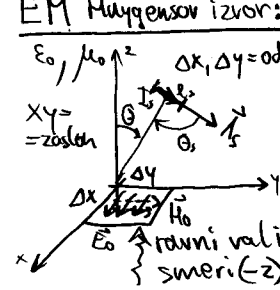 EM Huygensov izvor:
ε₀, μ₀ z Δx, Δy = od
XY=
=zaslon
Θ Θs
Δx Δy Y
E₀ H₀
x ravni vali
smeri (-z)